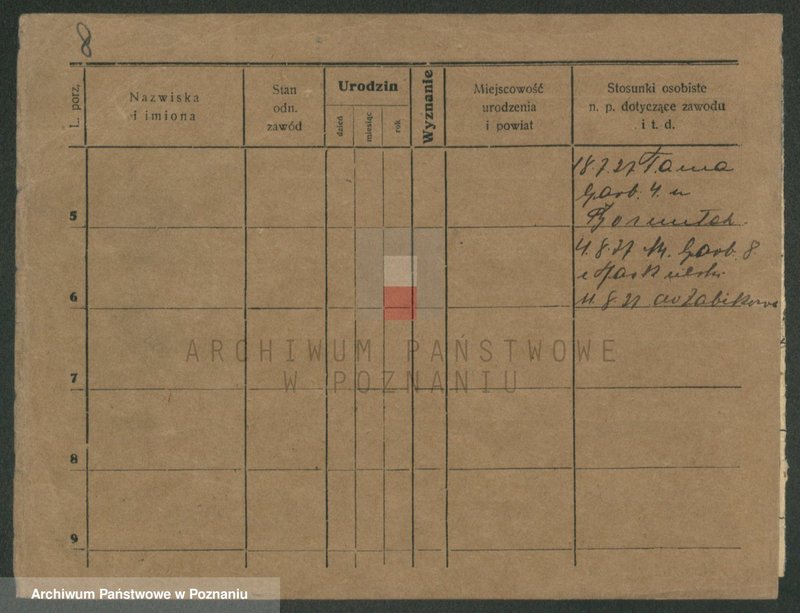 8
L. porz,
Nazwiska
i imiona
Stan
odn.
zawód
Urodzin
dzień
miesiąc
rok
Wyznanie
Miejscowość
urodzenia
i powiat
Stosunki osobiste
n. p. dotyczące zawodu
i t. d.
18.7.27 Tama
Garb. 4. u
5
4.8.27 Garb. 8
6
11.8.27 do Żabikowa
7
8
9
ARCHIWUM PAŃSTWOWE
W POZNANIU
Archiwum Państwowe w Poznaniu